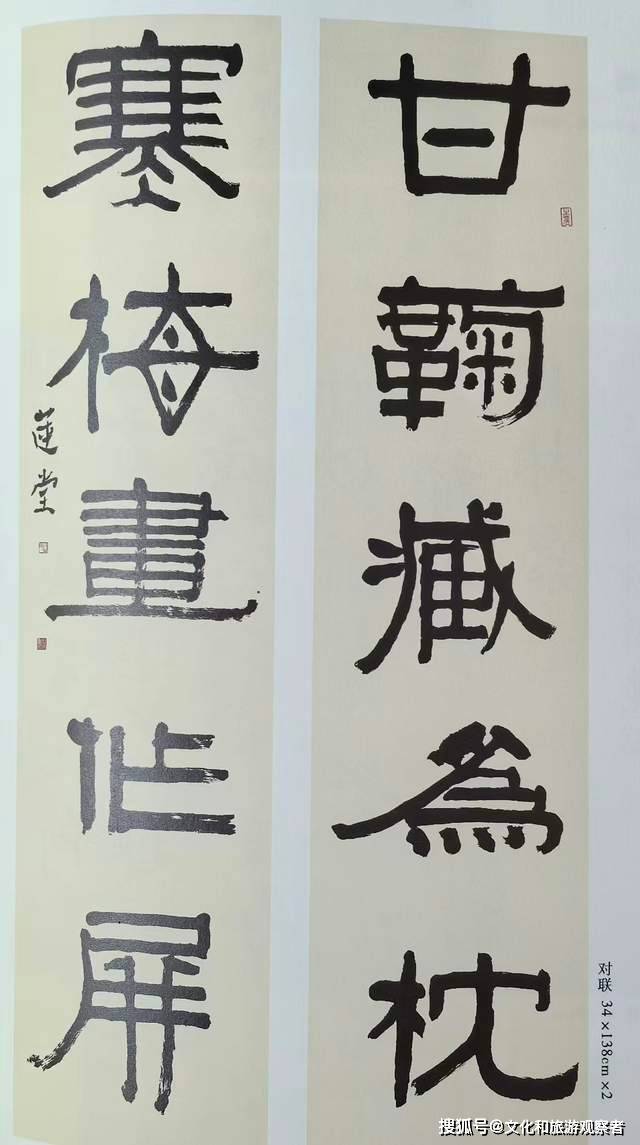 甘鞠藏為枕
寒梅畫作屏
蓮堂
对联 34×138cm×2
搜狐号@文化和旅游观察者